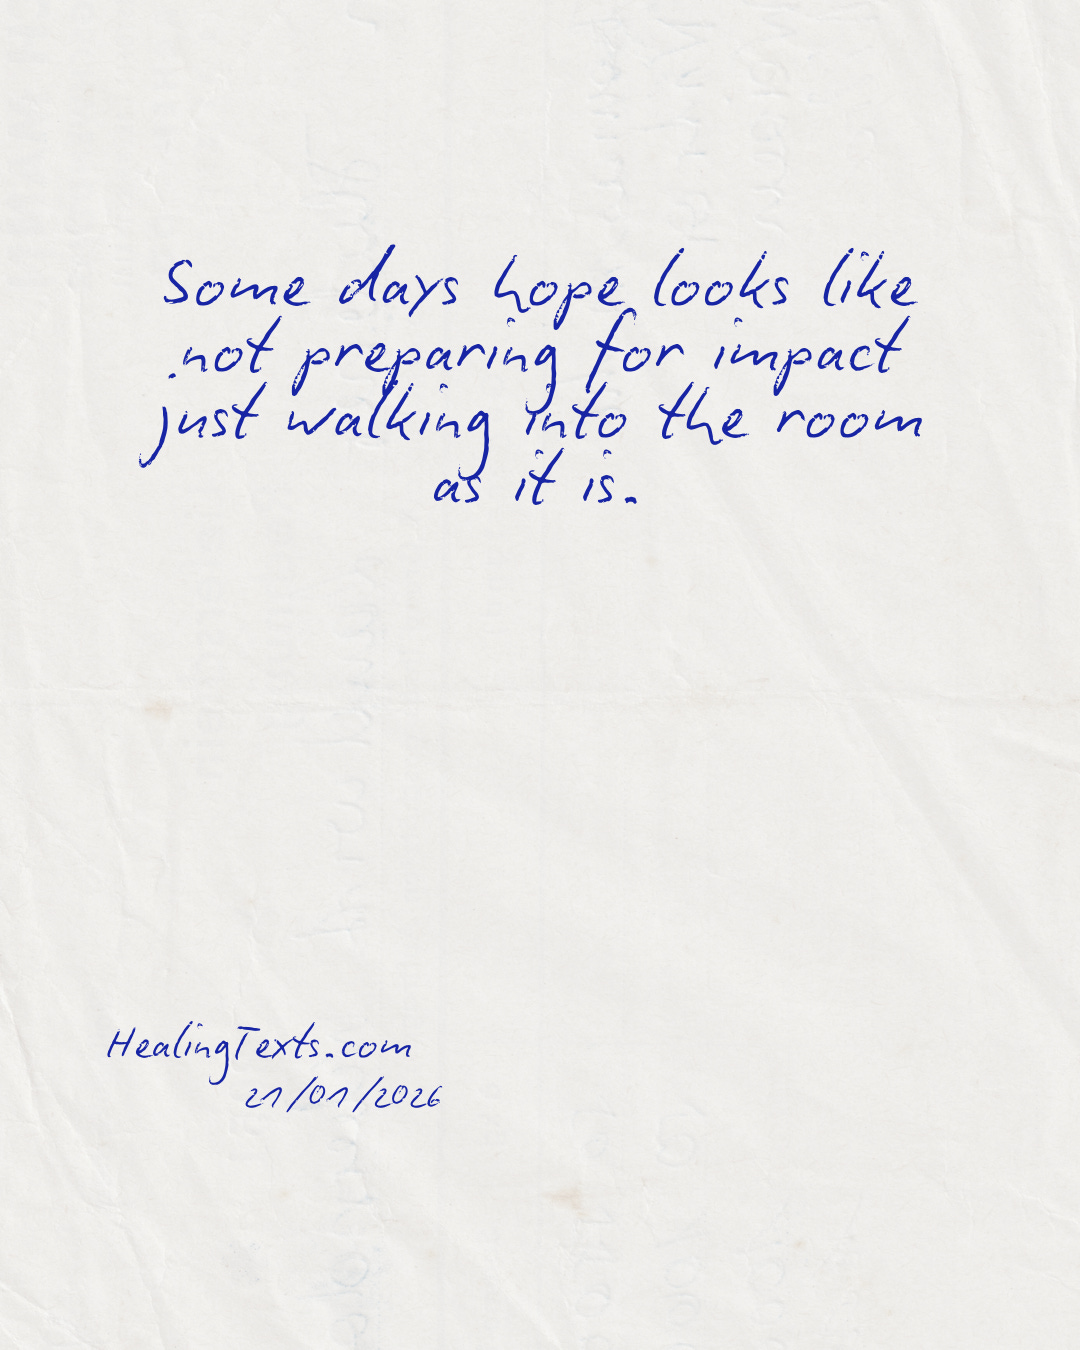 Some days hope looks like
not preparing for impact
just walking into the room
as it is.
HealingTexts.com
21/01/2026